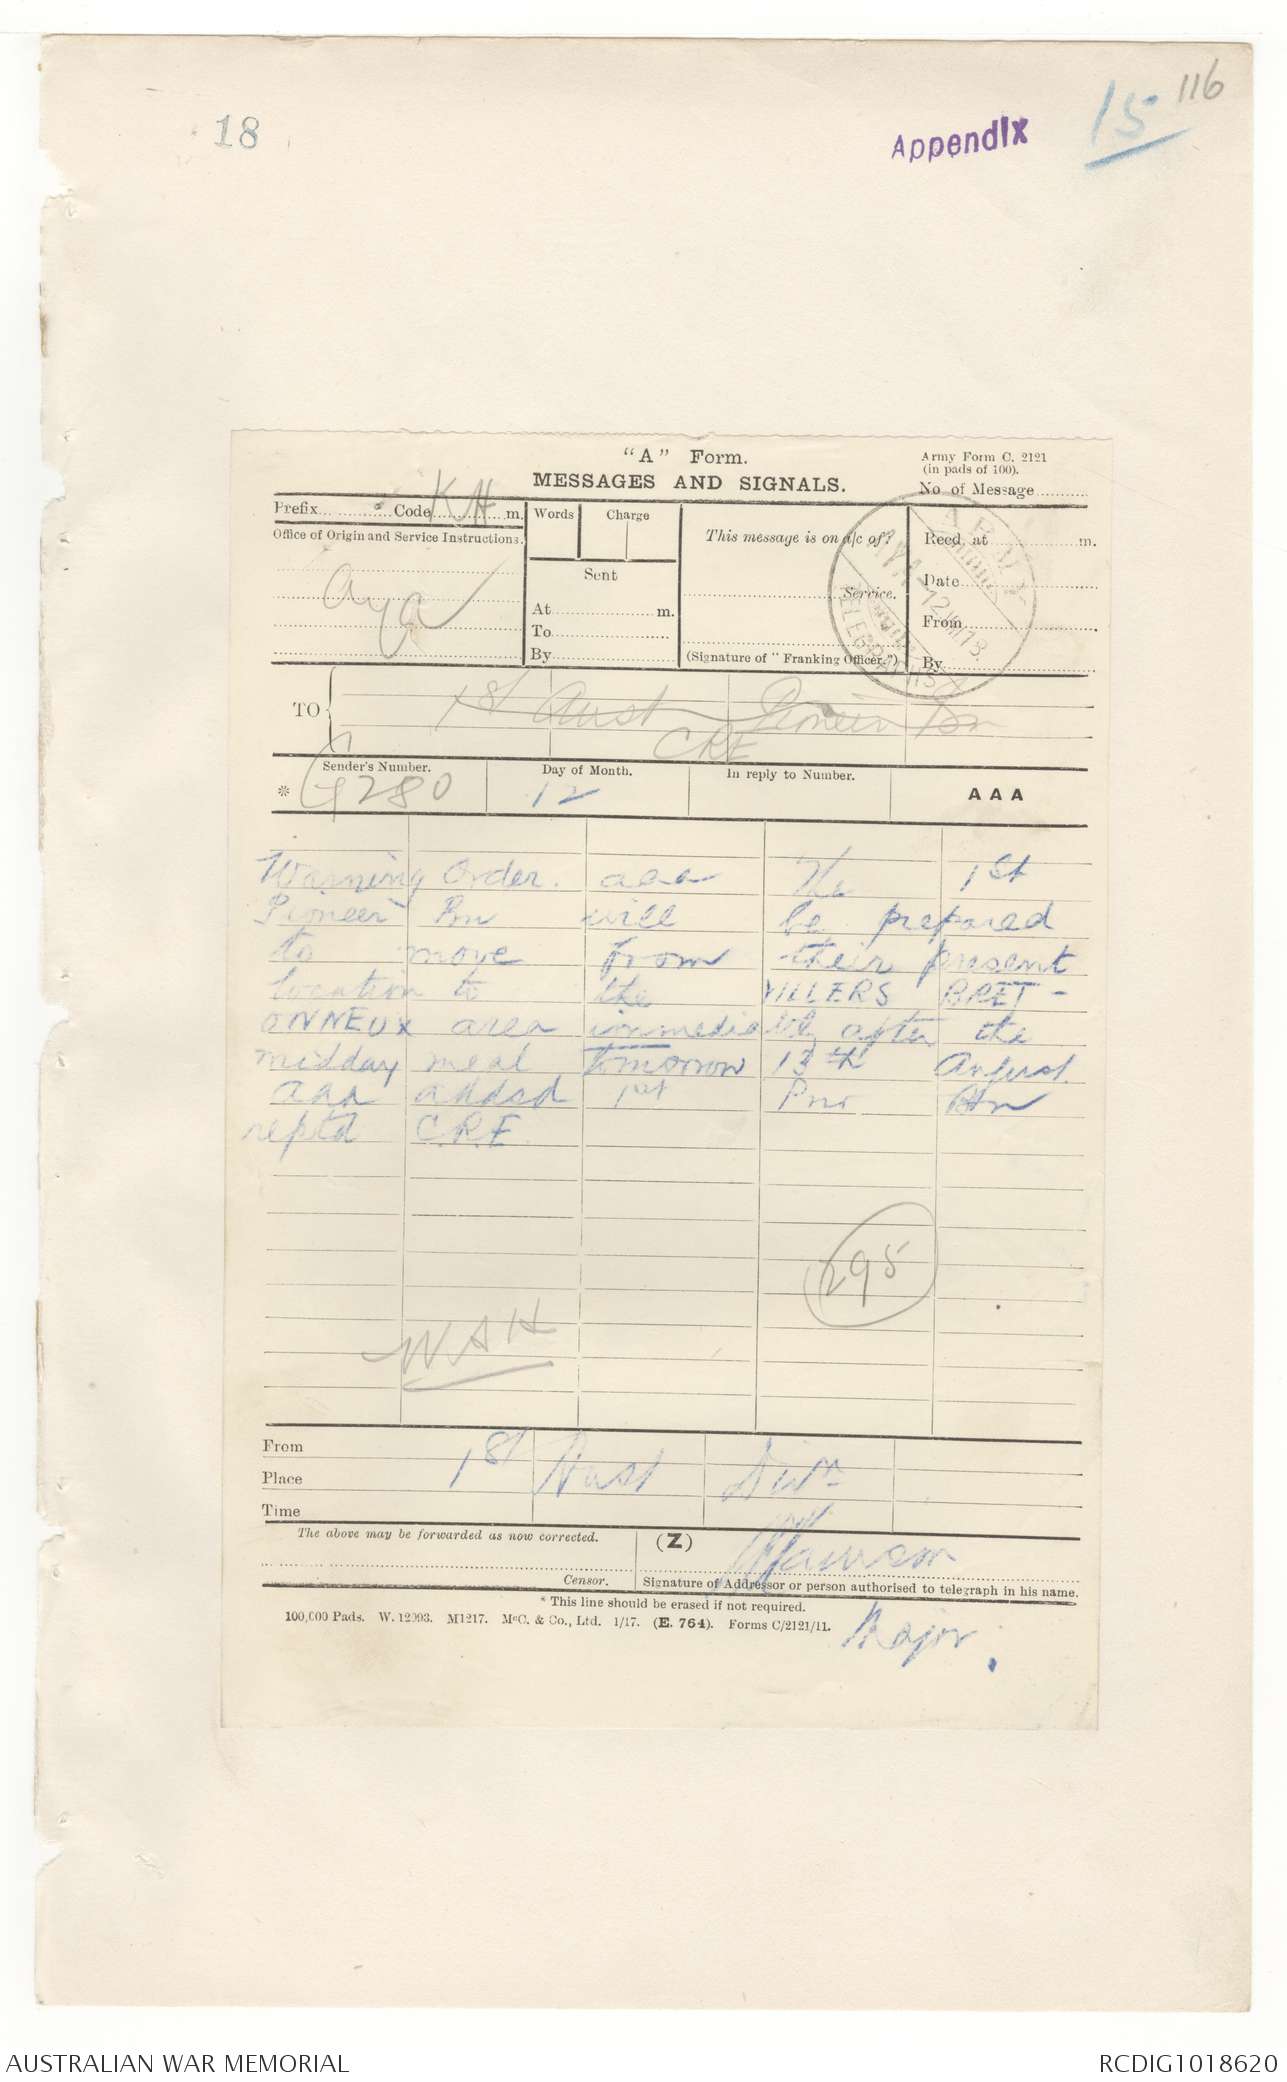 18
Appendix 15 116
"A" Form.
MESSAGES AND SIGNALS.
Army Form C. 2121
(in pads of 100).
No of Message
Prefix Code KH m.
Words Charge
This message is on a/c of?
Recd. at m.
Office of Origin and Service Instructions.
Aya
Sent
At m.
To
By
Service.
(Signature of "Franking Officer.")
Date
From
By
ARMY
AYA
12 VIII 18.
TELEGRAPHS
TO 1st Aust Pioneer Bn
CRE
Sender's Number. Day of Month. In reply to Number. AAA
* G280 12
Warning Order. aaa The 1st
Pioneer Bn will be prepared
to move from their present
location to the VILLERS BRET-
ONNEUX area immediatly after the
midday meal tomorrow 13th August.
aaa addsd 1st Pnr Btn
reptd C.R.E.
295
WAH
From 1st Aust Divn
Place
Time
The above may be forwarded as now corrected. (Z)
Censor. Signature of Addressor or person authorised to telegraph in his name.
* This line should be erased if not required.
100,000 Pads. W. 12993. M1217. McC. & Co., Ltd. 1/17. (E. 764). Forms C/2121/11.
Major.
AUSTRALIAN WAR MEMORIAL RCDIG1018620